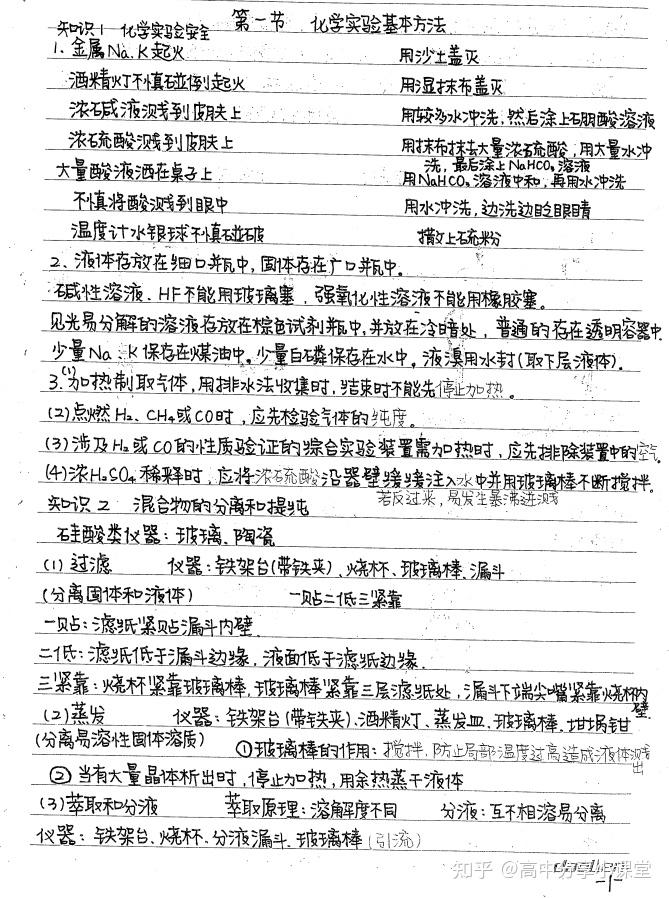 第一节 化学实验基本方法
知识1 化学实验安全
1. 金属Na、K起火 用沙土盖灭
酒精灯不慎碰倒起火 用湿抹布盖灭
浓碱液溅到皮肤上 用较多水冲洗,然后涂上硼酸溶液
浓硫酸溅到皮肤上 用抹布抹去大量浓硫酸,用大量水冲洗,最后涂上NaHCO₃溶液
大量酸液洒在桌子上 用NaHCO₃溶液中和,再用水冲洗
不慎将酸溅到眼中 用水冲洗,边洗边眨眼睛
温度计水银球不慎碰破 撒上硫粉
2、液体存放在细口瓶中,固体存在广口瓶中。
碱性溶液、HF不能用玻璃塞,强氧化性溶液不能用橡胶塞。
见光易分解的溶液存放在棕色试剂瓶中,并放在冷暗处,普通的存在透明容器中.
少量Na、K保存在煤油中。少量白磷保存在水中。液溴用水封(取下层液体).
3.(1)加热制取气体,用排水法收集时,结束时不能先停止加热。
(2)点燃H₂、CH₄或CO时,应先检验气体的纯度。
(3)涉及H₂或CO的性质验证的综合实验装置需加热时,应先排除装置中的空气.
(4)浓H₂SO₄稀释时,应将浓硫酸沿器壁缓缓注入水中并用玻璃棒不断搅拌.
若反过来,易发生暴沸迸溅
知识2 混合物的分离和提纯
硅酸类仪器:玻璃、陶瓷
(1)过滤 仪器:铁架台(带铁夹)、烧杯、玻璃棒、漏斗
(分离固体和液体) 一贴二低三紧靠
一贴:滤纸紧贴漏斗内壁.
二低:滤纸低于漏斗边缘,液面低于滤纸边缘.
三紧靠:烧杯紧靠玻璃棒,玻璃棒紧靠三层滤纸处,漏斗下端尖嘴紧靠烧杯内壁.
(2)蒸发 仪器:铁架台(带铁夹)、酒精灯、蒸发皿、玻璃棒、坩埚钳
(分离易溶性固体溶质) ①玻璃棒的作用:搅拌,防止局部温度过高造成液体溅出
②当有大量晶体析出时,停止加热,用余热蒸干液体
(3)萃取和分液 萃取原理:溶解度不同 分液:互不相溶易分离
仪器:铁架台、烧杯、分液漏斗、玻璃棒(引流)
知乎 @高中分享小课堂
-1-